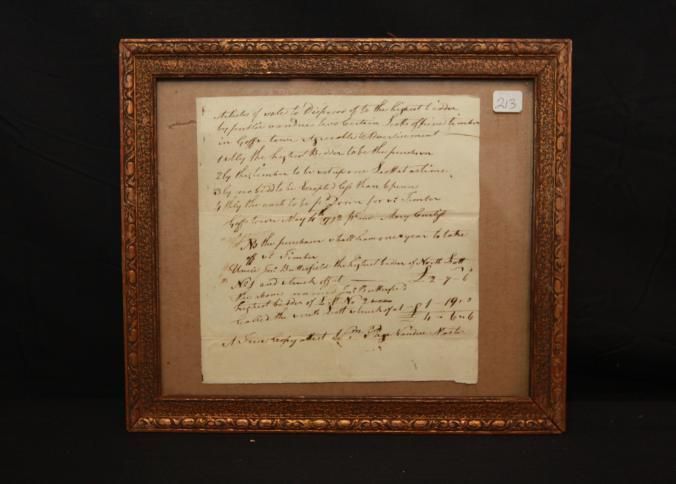 213
Articles of sale to Disposed of to the highest bidder
by publer vandue two Certain Lotts of pine timber
in Goffs town Agreeable to Advertisement
1 ly the highest Bidder to be the purchaser
2 ly the timber to be set up one Lott at a time
3 ly no bidd to be Excepted less than 6 pence
4 thly the cash to be pd Down for sd Timber
Goffstown May
NB the purchaser shall have one year to take
off sd Timber
Butterfield the highest bidder of North Lott
No 1 and struck off at £ 2 - 7 - 6
the above named Butterfield
highest bidder of Lott No 2
called the south Lott struck of at £ 1 - 19 - 0
£ 4 - 6 - 6
A True Copy attest Vandue Master